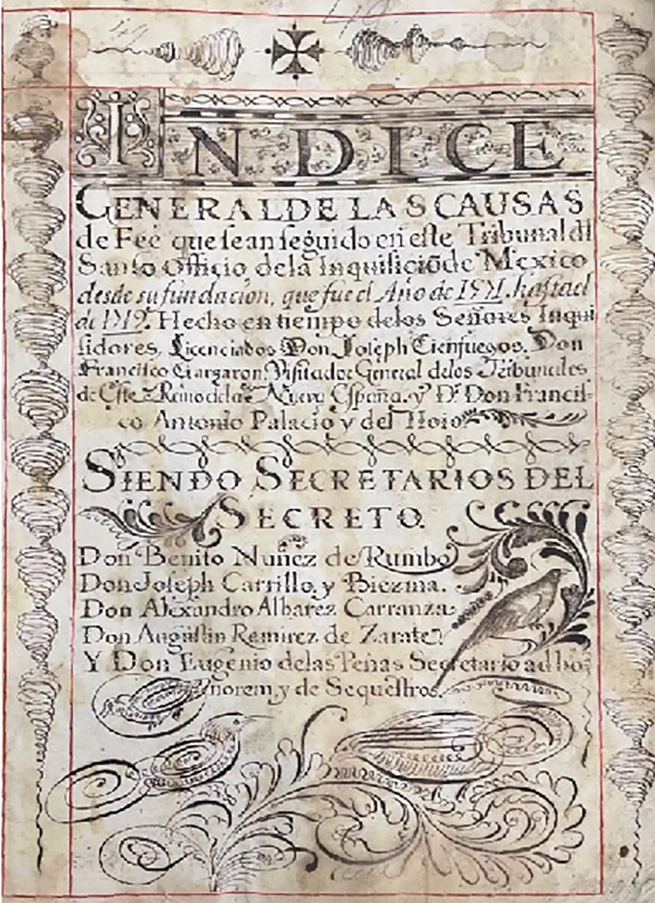 INDICE
GENERAL DE LAS CAUSAS
de Feè que se an seguido en este Tribunal dl
Santo Officio de la Inquisiciõ de Mexico
desde su fundacion, que fue el Año de 1571. hasta el
de 1719. Hecho en tiempo de los Señores Inqui
sidores, Licenciados Don Joseph Cienfuegos, Don
Francisco Garzaron Visitador General de los Tribunales
de Este Reino de la Nueva España. y Dr. Don Francis-
co Antonio Palacio y del Hoio.
SIENDO SECRETARIOS DEL
SECRETO.
Don Benito Nuñez de Rumbo
Don Joseph Carrillo, y Biezma.
Don Alexandro Albarez Carranza
Don Augustin Ramirez de Zarate
Y Don Eugenio de las Peñas Secretario ad ho
norem, y de Sequestros.